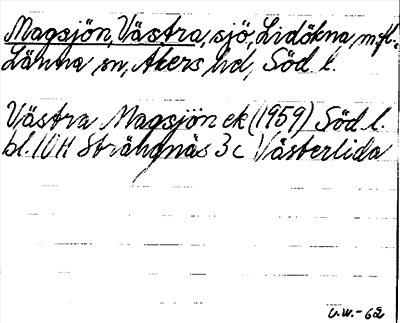 Magsjön, Västra, sjö, Lidökna m.fl.
Länna sn, Åkers hd, Söd. l.
Västra Magsjön ek (1959) Söd l.
bl. 10H Strängnäs 3c Västerlida
U.W.-62